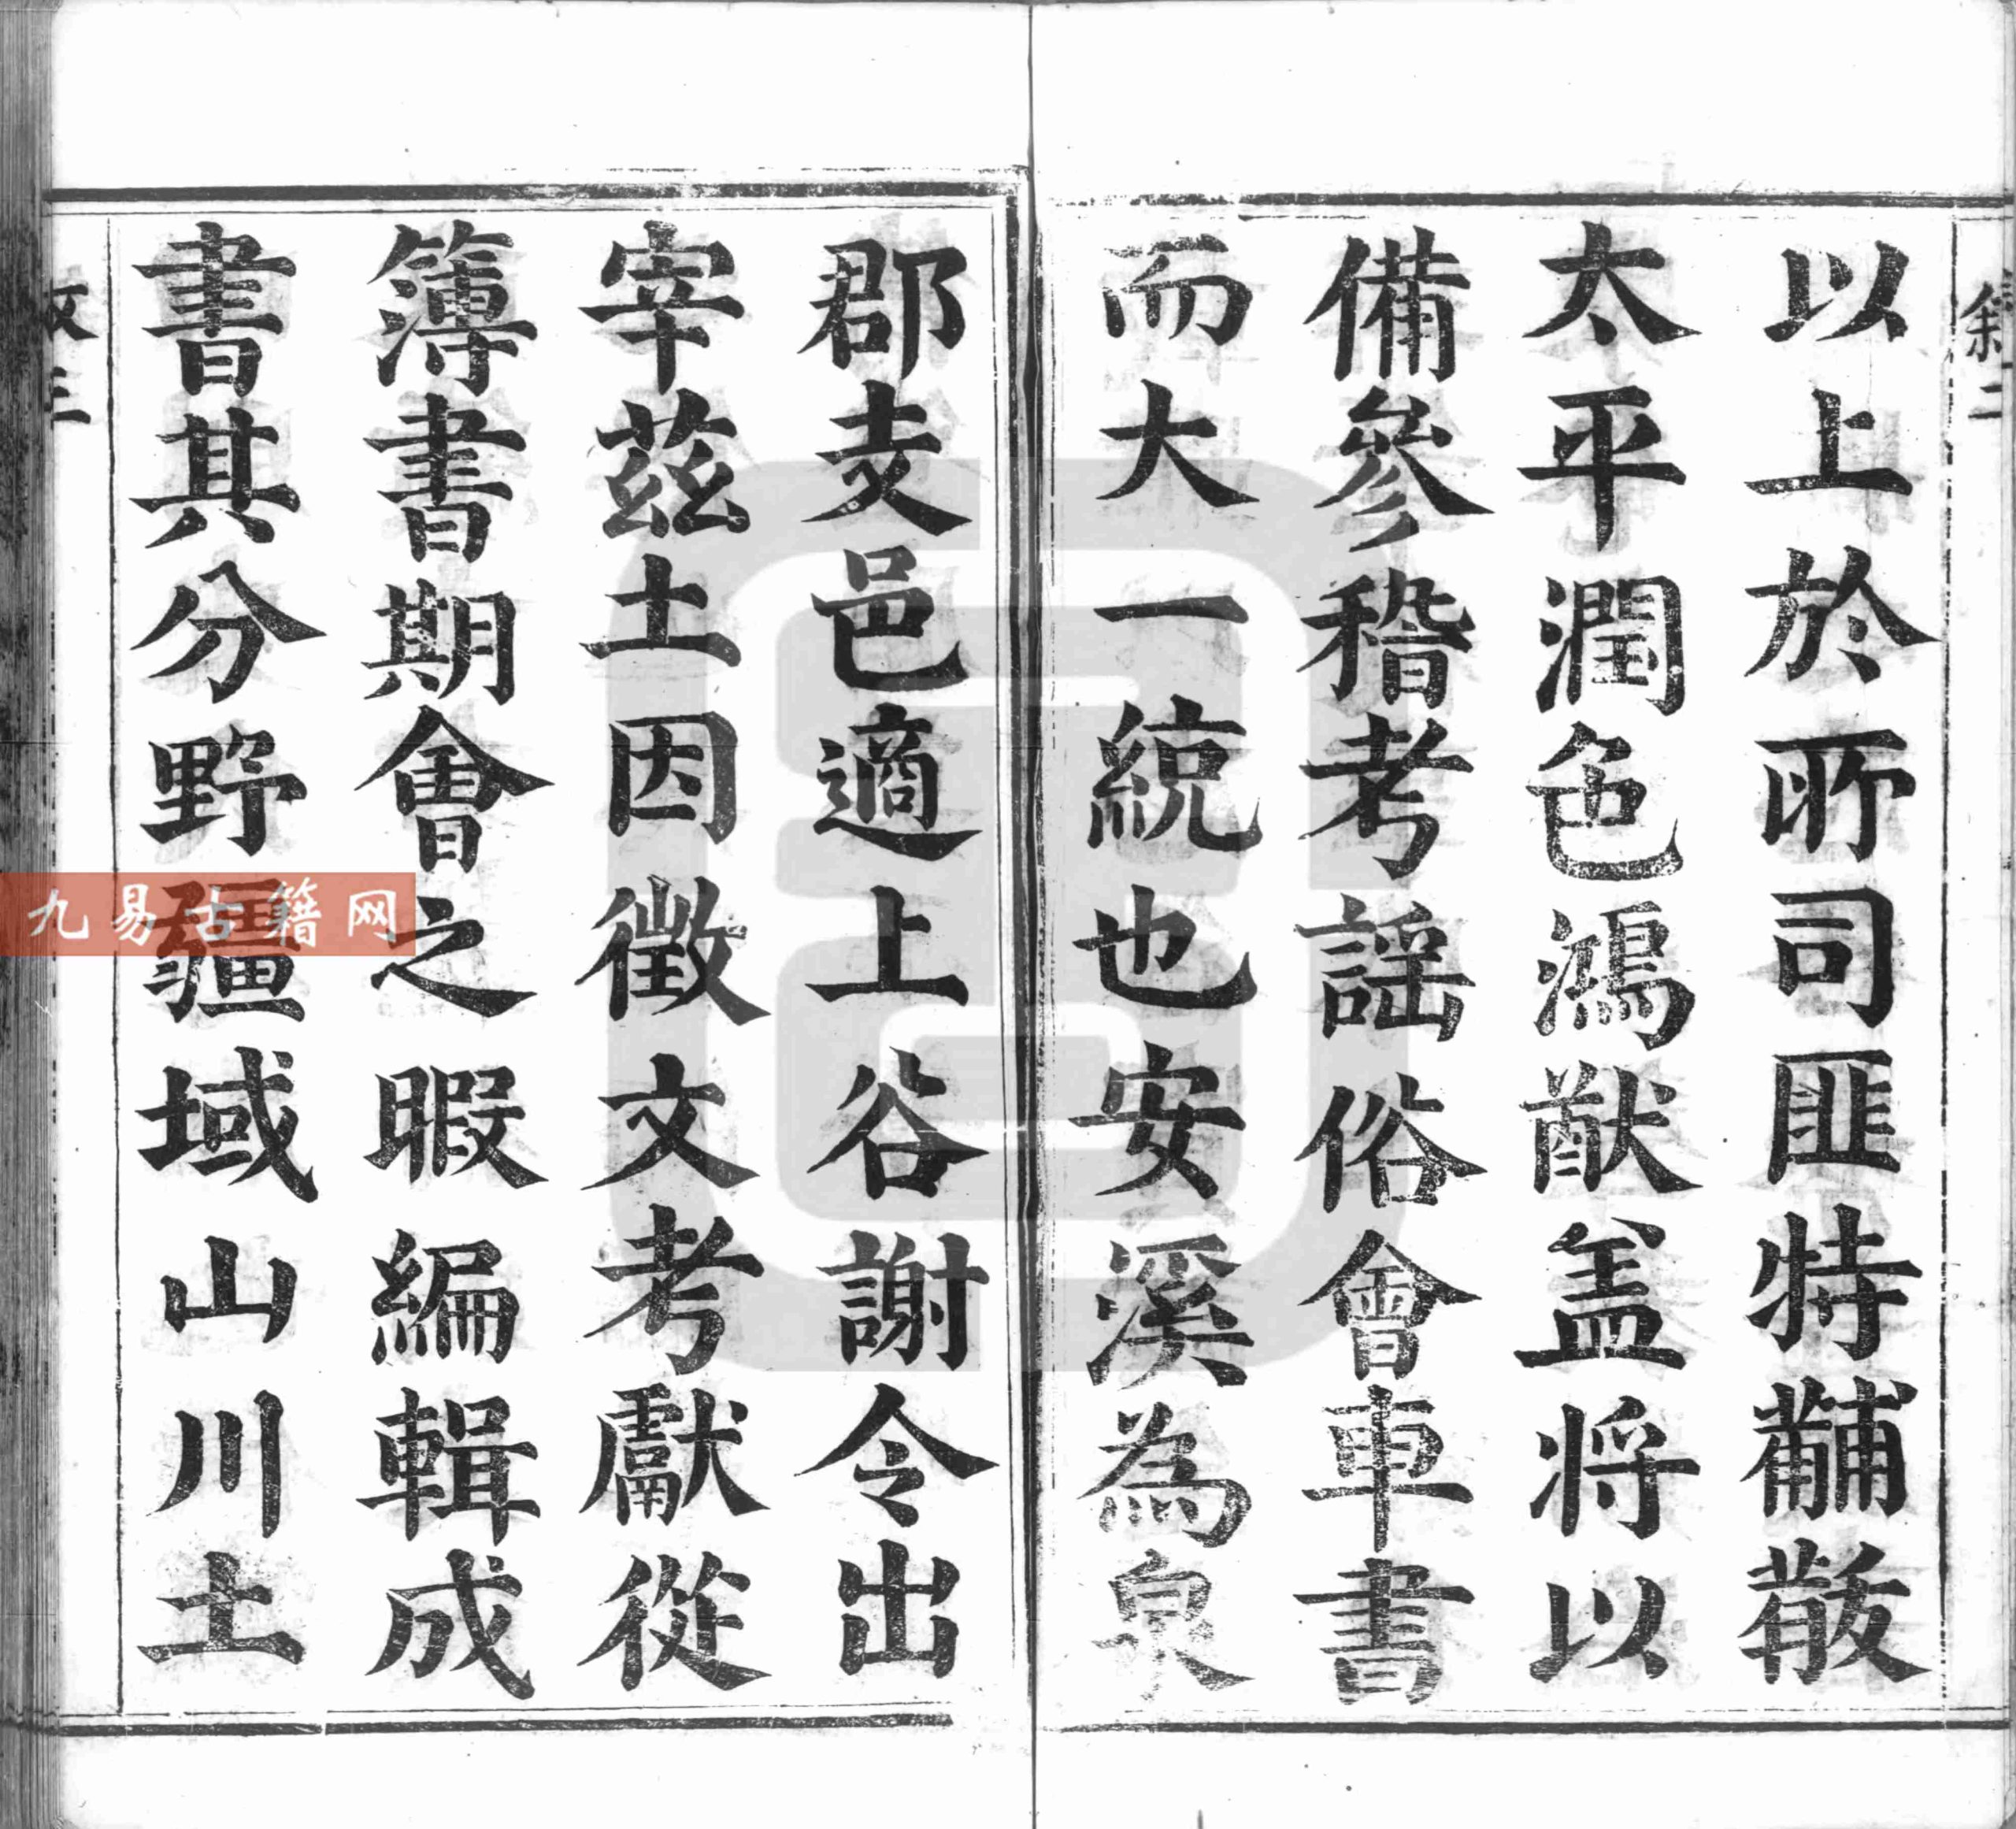 叙二
以上於所司匪特黼黻
太平潤色鴻猷盖将以
備參稽考謡俗會車書
而大一統也安溪為泉
郡支邑適上谷謝令出
宰茲土因徵文考獻從
簿書期會之暇編輯成
書其分野疆域山川土
三
九易古籍网